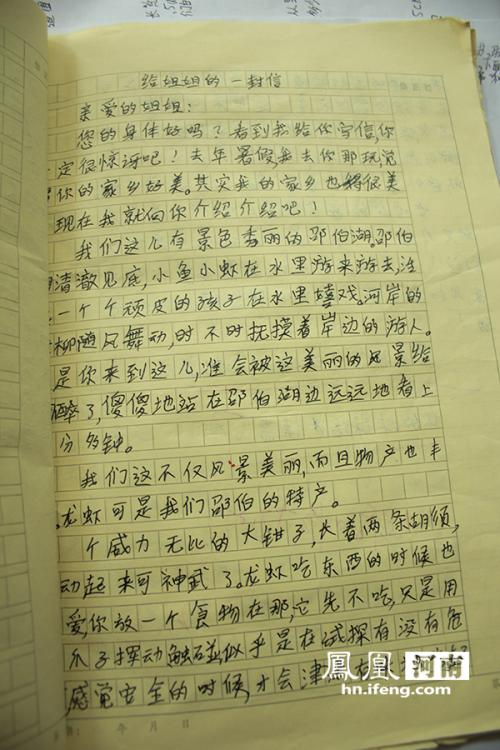 给姐姐的一封信
亲爱的姐姐：
您的身体好吗？看到我给你写信，你
一定很惊讶吧！去年暑假，我去你那玩，觉
你的家乡好美。其实我的家乡也很美
现在我就向你介绍介绍吧！
我们这儿有景色秀丽的邵伯湖。邵伯
清澈见底，小鱼小虾在水里游来游去，活
一个个顽皮的孩子在水里嬉戏。河岸的
柳随风舞动，时不时抚摸着岸边的游人。
是你来到这儿，准会被这美丽的风景给
醉了，傻傻地站在邵伯湖边远远地看上
分多钟。
我们这不仅风景美丽，而且物产也丰
龙虾可是我们邵伯的特产。
个威力无比的大钳子，长着两条胡须，
动起来可神武了。龙虾吃东西的时候也
爱，你放一个食物在那，它先不吃，只是用
爪子挥动触碰似乎是在试探有没有危
感觉安全的时候，才会津
凤凰河南
hn.ifeng.com
年 月 日